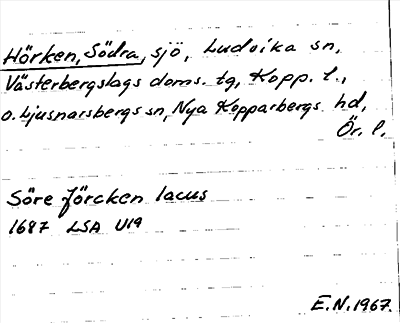 Hörken, Södra, sjö, Ludvika sn,
Västerbergslags doms. tg, Kopp. l.,
o. Ljusnarsbergs sn, Nya Kopparbergs hd,
Ör. l.
Söre Jörcken lacus
1687 LSA U19
E.N. 1967.